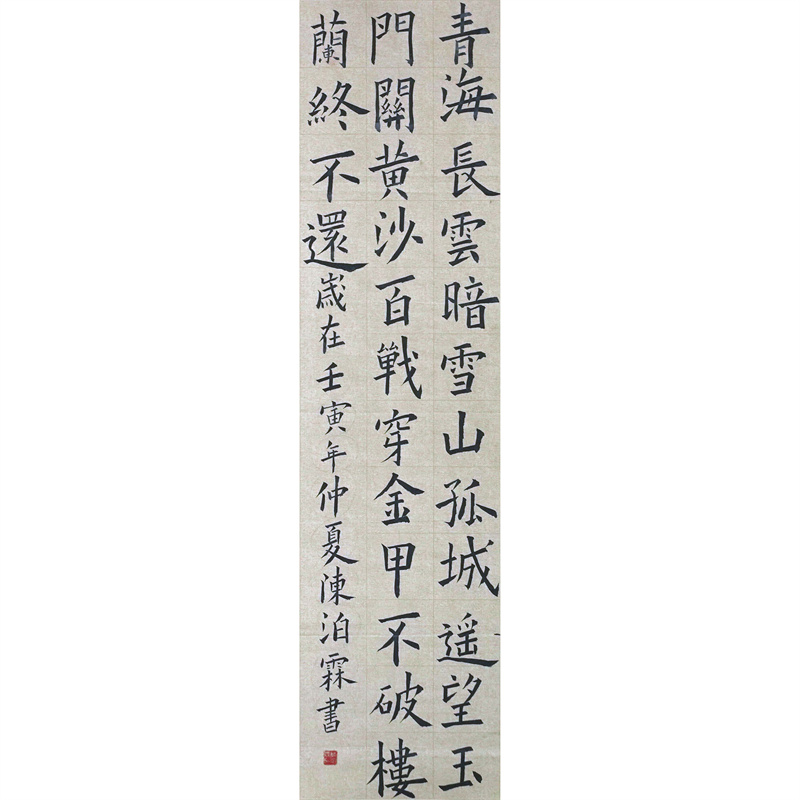 青海長雲暗雪山孤城遥望玉
門關黄沙百戰穿金甲不破樓
蘭終不還歲在壬寅年仲夏陳泊霖書